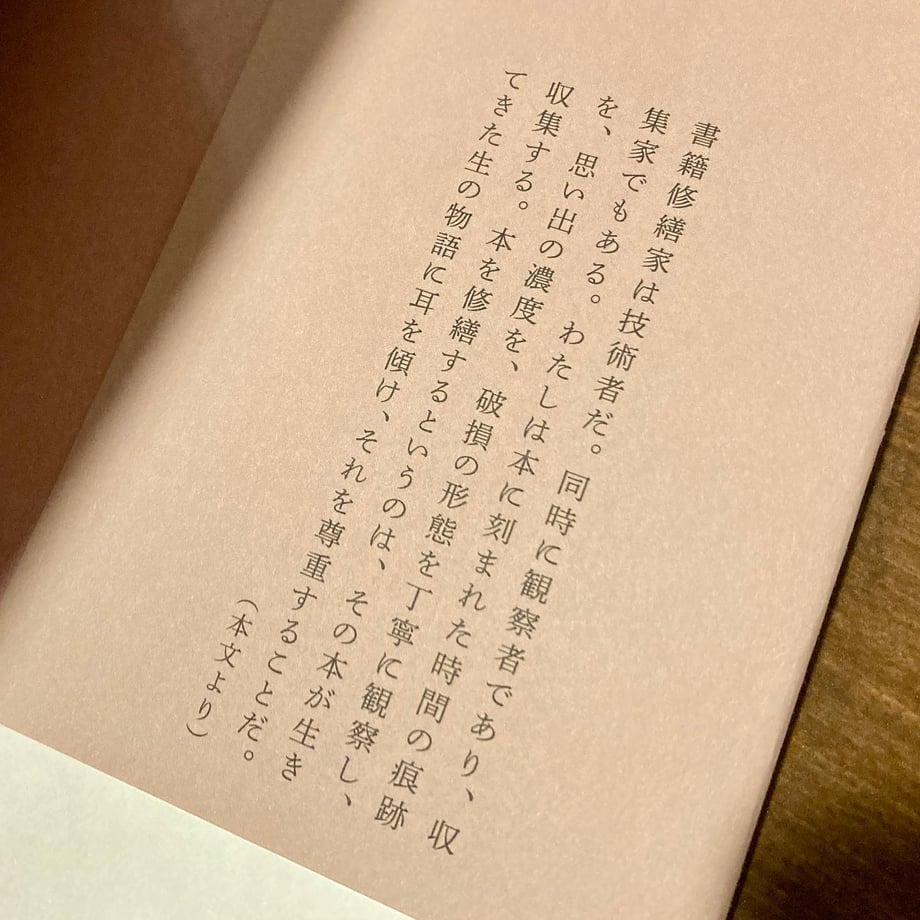 書籍修繕家は技術者だ。同時に観察者であり、収
集家でもある。わたしは本に刻まれた時間の痕跡
を、思い出の濃度を、破損の形態を丁寧に観察し、
収集する。本を修繕するというのは、その本が生き
てきた生の物語に耳を傾け、それを尊重することだ。
（本文より）